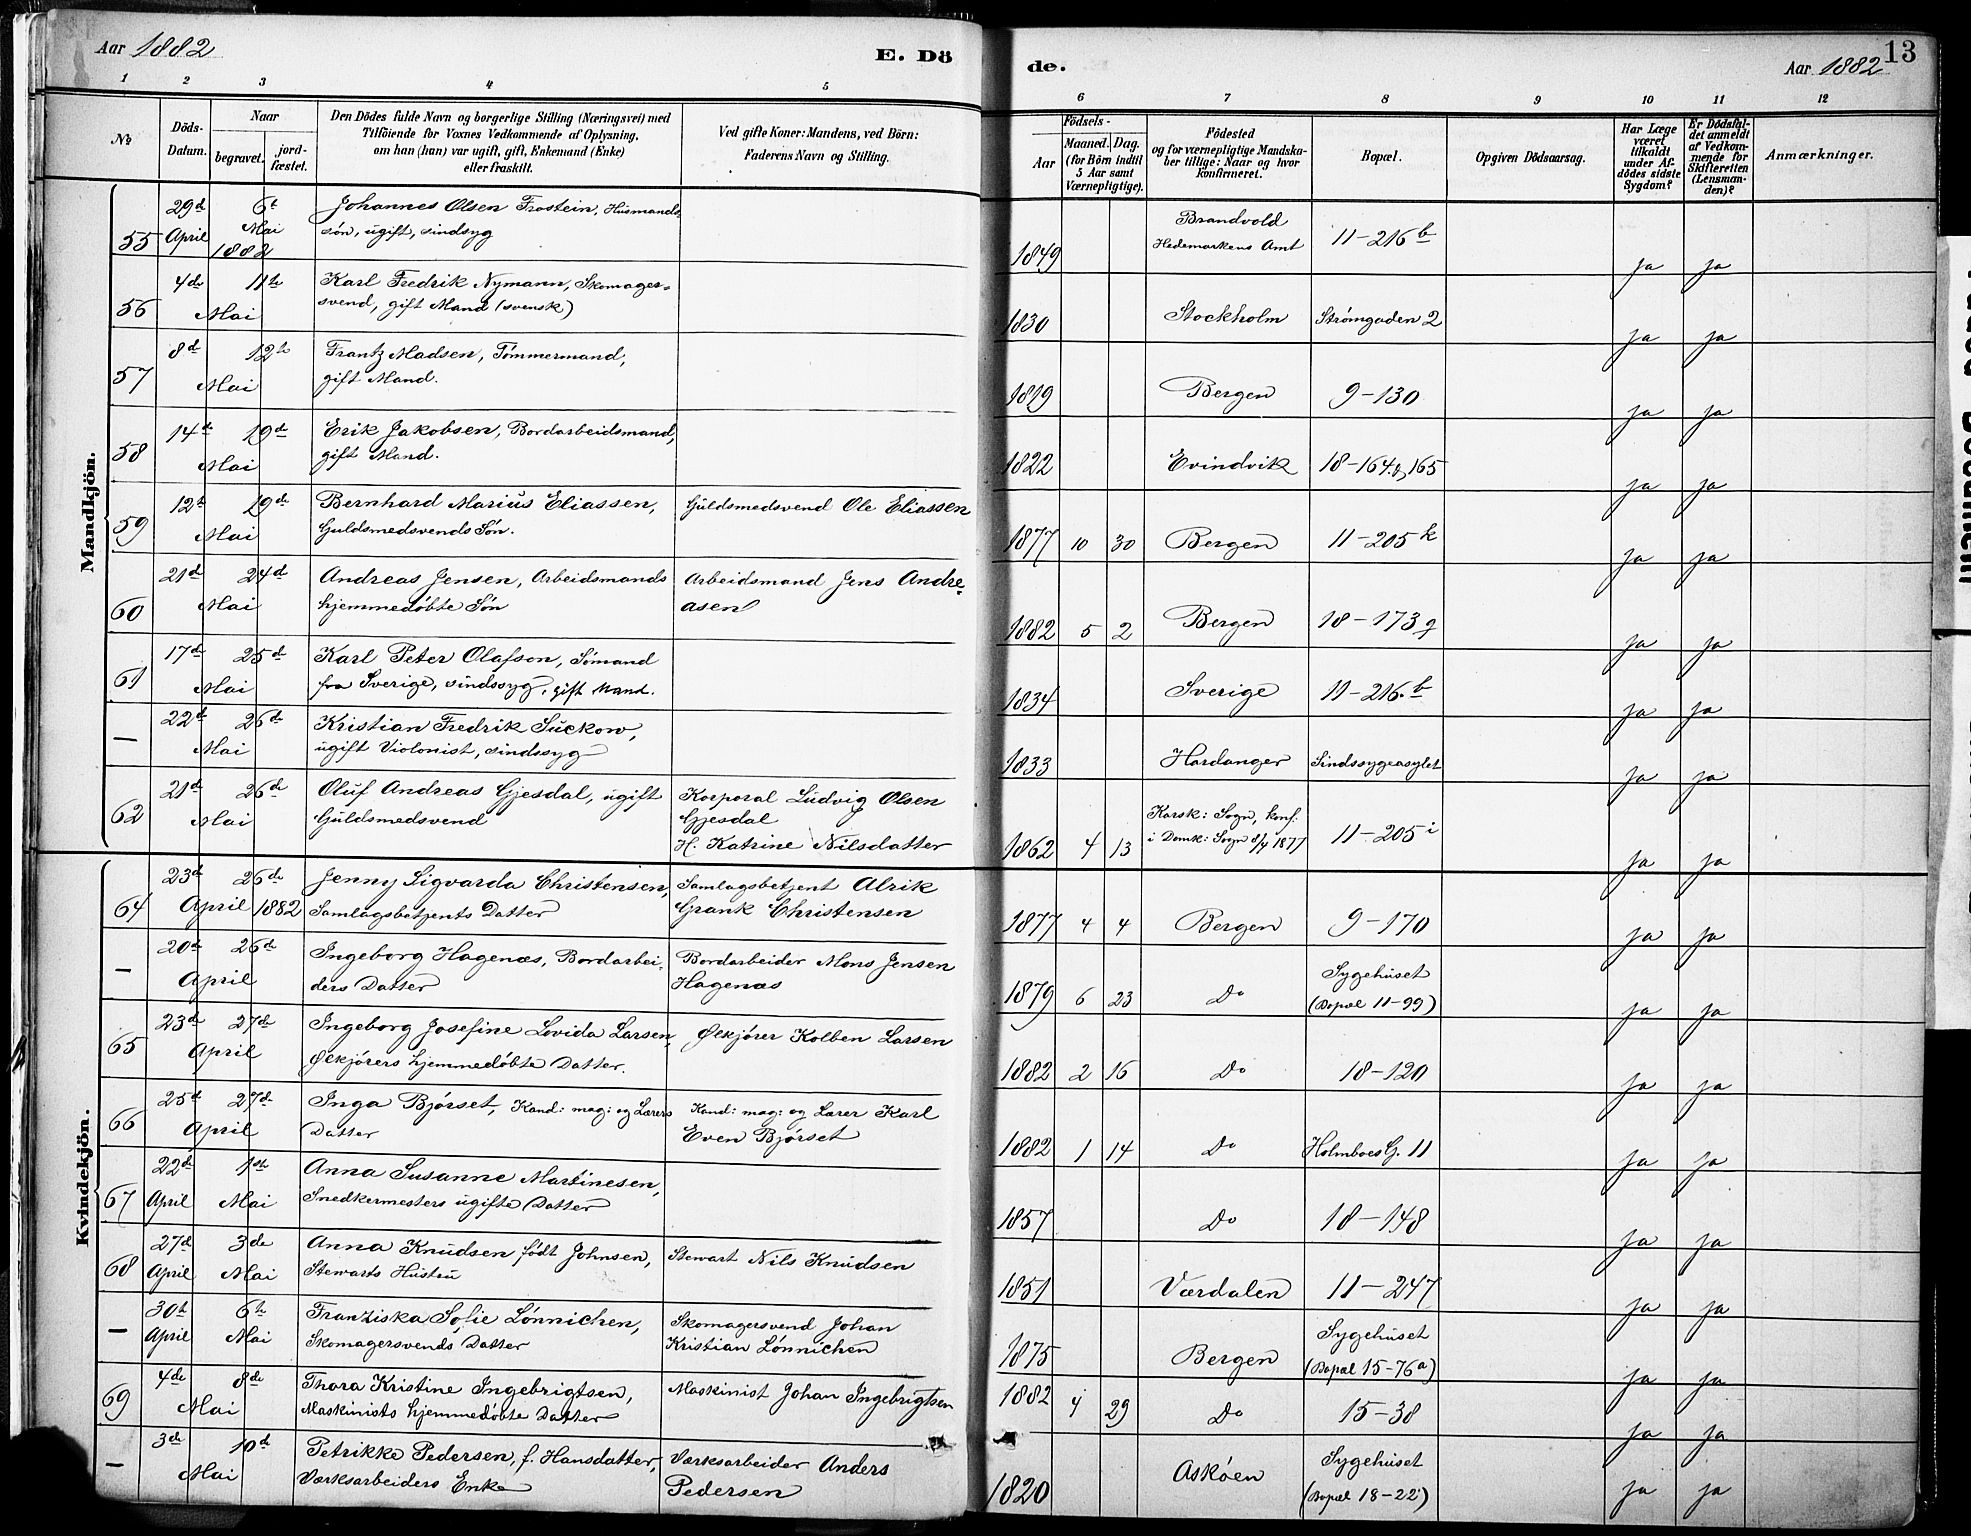 Aar 1882
E. Dö
de.
Aar 1882
13
1 2 3 4 5
6 7 8 9 10 11 12
No
Döds-
Datum.
Naar
begravet.
jord-
fæstet.
Den Dödes fulde Navn og borgerlige Stilling (Næringsvei) med
Tilföiende for Voxnes Vedkommende af Oplysning,
om han (hun) var ugift, gift, Enkemand (Enke)
eller fraskilt.
Ved gifte Koner: Mandens, ved Börn:
Faderens Navn og Stilling.
Födsels-
Aar
Maaned.
Dag.
(for Börn indtil
5 Aar samt
Værnepligtige).
Födested
og for værnepligtige Mandska-
ber tillige: Naar og hvor
konfirmeret.
Bopæl.
Opgiven Dödsaarsag.
Har Læge
været
tilkaldt
under Af-
dödes sidste
Sygdom?
Er Dödsfal-
det anmeldt
af Vedkom-
mende for
Skifteretten
(Lensman-
den)?
Anmærkninger.
Mandkjön.
55 29d April 6t Mai 1882 Johannes Olsen Frostein, Husmands
søn, ugift, sindsyg
1849 Brandvold
Hedemarkens Amt 11-216 b Ja Ja
56 4de 11te Mai Karl Fredrik Nymann, Skomager=
svend, gift Mand (svensk)
1830 Stockholm Strømgaden 2 Ja Ja
57 8d 12te Mai Frantz Madsen, Tømmermand,
gift Mand.
1819 Bergen 9-130 Ja Ja
58 14de 19de Mai Erik Jakobsen, Bordarbeidsmand,
gift Mand.
1822 Evindvik 18-164 & 165 Ja Ja
59 12te 19de Mai Bernhard Marius Eliassen,
Guldsmedsvends Søn.
Guldsmedsvend Ole Eliassen
1877 10 30 Bergen 11-205 k Ja Ja
60 21d 24d Mai Andreas Jensen, Arbeidsmands
hjemmedøbte Søn
Arbeidsmand Jens Andre=
asen
1882 5 2 Bergen 18-173 g Ja Ja
61 17de 25de Mai Karl Peter Olafson, Sømand
fra Sverige, sindssyg, gift Mand.
1834 Sverige 11-216. b Ja Ja
— 22de 26de Mai Kristian Fredrik Suckow,
ugift Violonist, sindssyg
1833 Hardanger Sindssygeasylet Ja Ja
62 21de 26de Mai Oluf Andreas Gjesdal, ugift
Guldsmedsvend
Korporal Ludvig Olsen
Gjesdal
H. Katrine Nilsdatter
1862 4 13 Korsk: Sogn, konf.
i Domk: Sogn 8/4 1877 11-205 i Ja Ja
Kvindekjön.
64 23de 26de April 1882 Jenny Sigvarda Christensen,
Samlagsbetjents Datter
Samlagsbetjent Alrik
Grank Christensen
1877 4 4 Bergen 9-170 Ja Ja
— 20de 26de April Ingeborg Hagenæs, Bordarbei-
ders Datter
Bordarbeider Mons Jensen
Hagenæs
1879 6 23 Do Sygehuset
(Bopæl 11-99) Ja Ja
65 23de 27de April Ingeborg Josefine Lovida Larsen,
Ølkjørers hjemmedøbte Datter.
Ølkjører Kolben Larsen
1882 2 16 Do 18-120 Ja Ja
66 25de 27de April Inga Bjørset, Kand: mag: og Lærers
Datter
Kand: mag: og Lærer Karl
Even Bjørset
1882 1 14 Do Holmboes G. 11 Ja Ja
67 22de April 1ste Mai Anna Susanne Martinesen,
Snedkermesters ugifte Datter
1857 Do 18-148 Ja Ja
68 27de April 3de Mai Anna Knudsen født Johnsen,
Stewarts Hustru
Stewart Nils Knudsen
1851 Værdalen 11-247 Ja Ja
— 30te April 6te Mai Franziska Sofie Lønnichen,
Skomagersvends Datter
Skomagersvend Johan
Kristian Lønnichen
1875 Bergen Sygehuset
(Bopæl 15-76a) Ja Ja
69 4de 8de Mai Thora Kristine Ingebrigtsen,
Maskinists hjemmedøbte Datter
Maskinist Johan Ingebrigtsen
1882 4 29 Do 15-38 Ja Ja
— 3de 10de Mai Petrikke Pedersen, f. Hansdatter,
Værksarbeiders Enke
Værksarbeider Anders
Pedersen
1820 Askøen Sygehuset
(Bopæl 18-22) Ja Ja